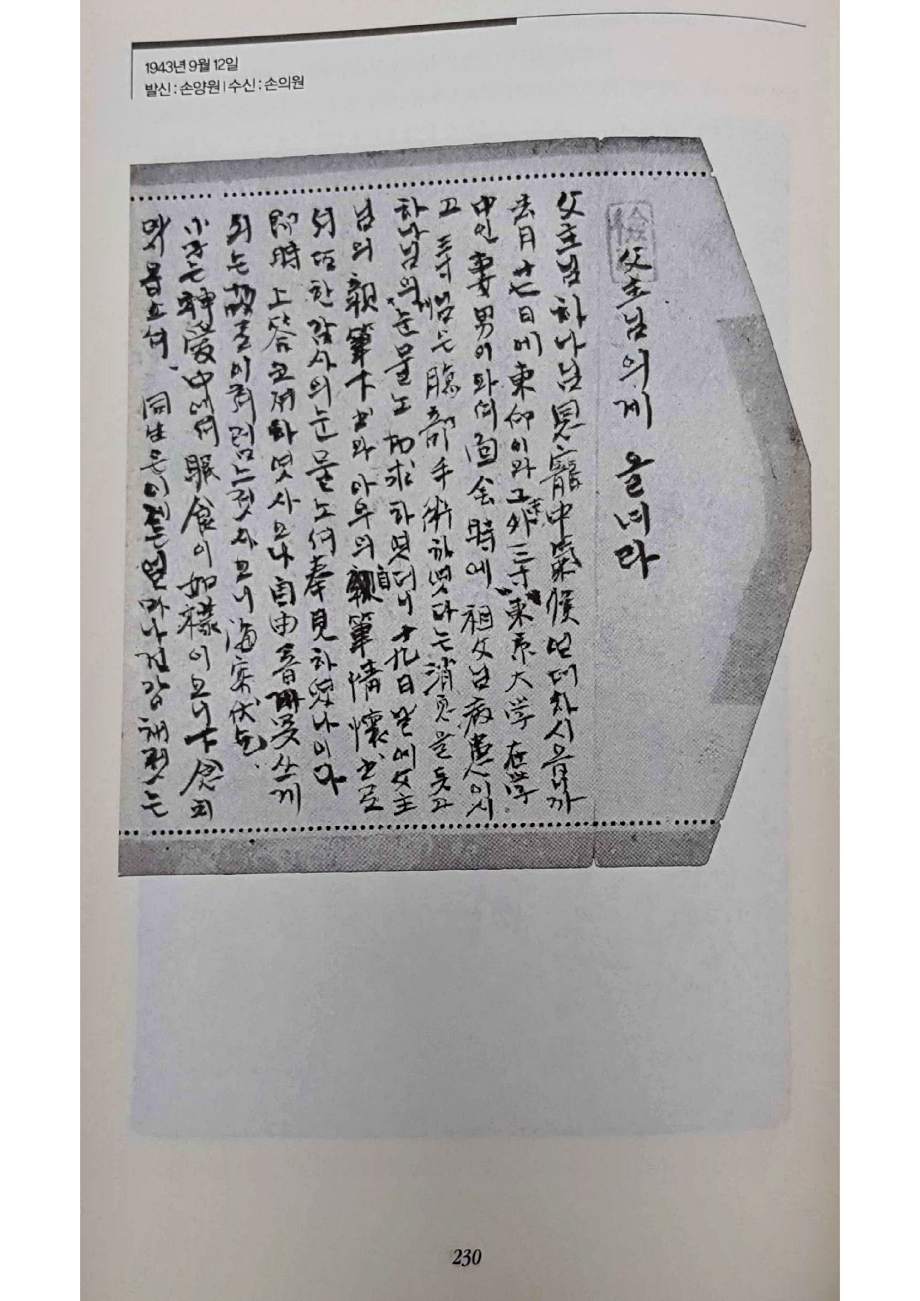 1943년 9월 12일
발신 : 손양원 | 수신 : 손의원
檢
父主님의게 올녀라
父主님 하나님 恩寵中 氣候 언더하시음니까
去月 廿七日에 東仰이와 그 外三寸 東京大学 在学
中인 妻男이 와셔 面会時에 祖父님 病患이시
고 主님은 腸部 手術하엿다는 消息을 듯고
하나님의게 눈물노 祈求하엿더니 十九日날에 父主
님의 親筆 下書와 아우의 自筆 情懷書로
의 또한 감사의 눈물노셔 奉見하엿나이다
即時 上答코져 하엿사오나 自由 못쓰게
되는 이처럼 느젓사오니 海容伏乞
小子는 神愛中에셔 眠食이 如樣이오니 下念치
마시옵소셔 同生은 이제는 얼마나 건강해젓는
230